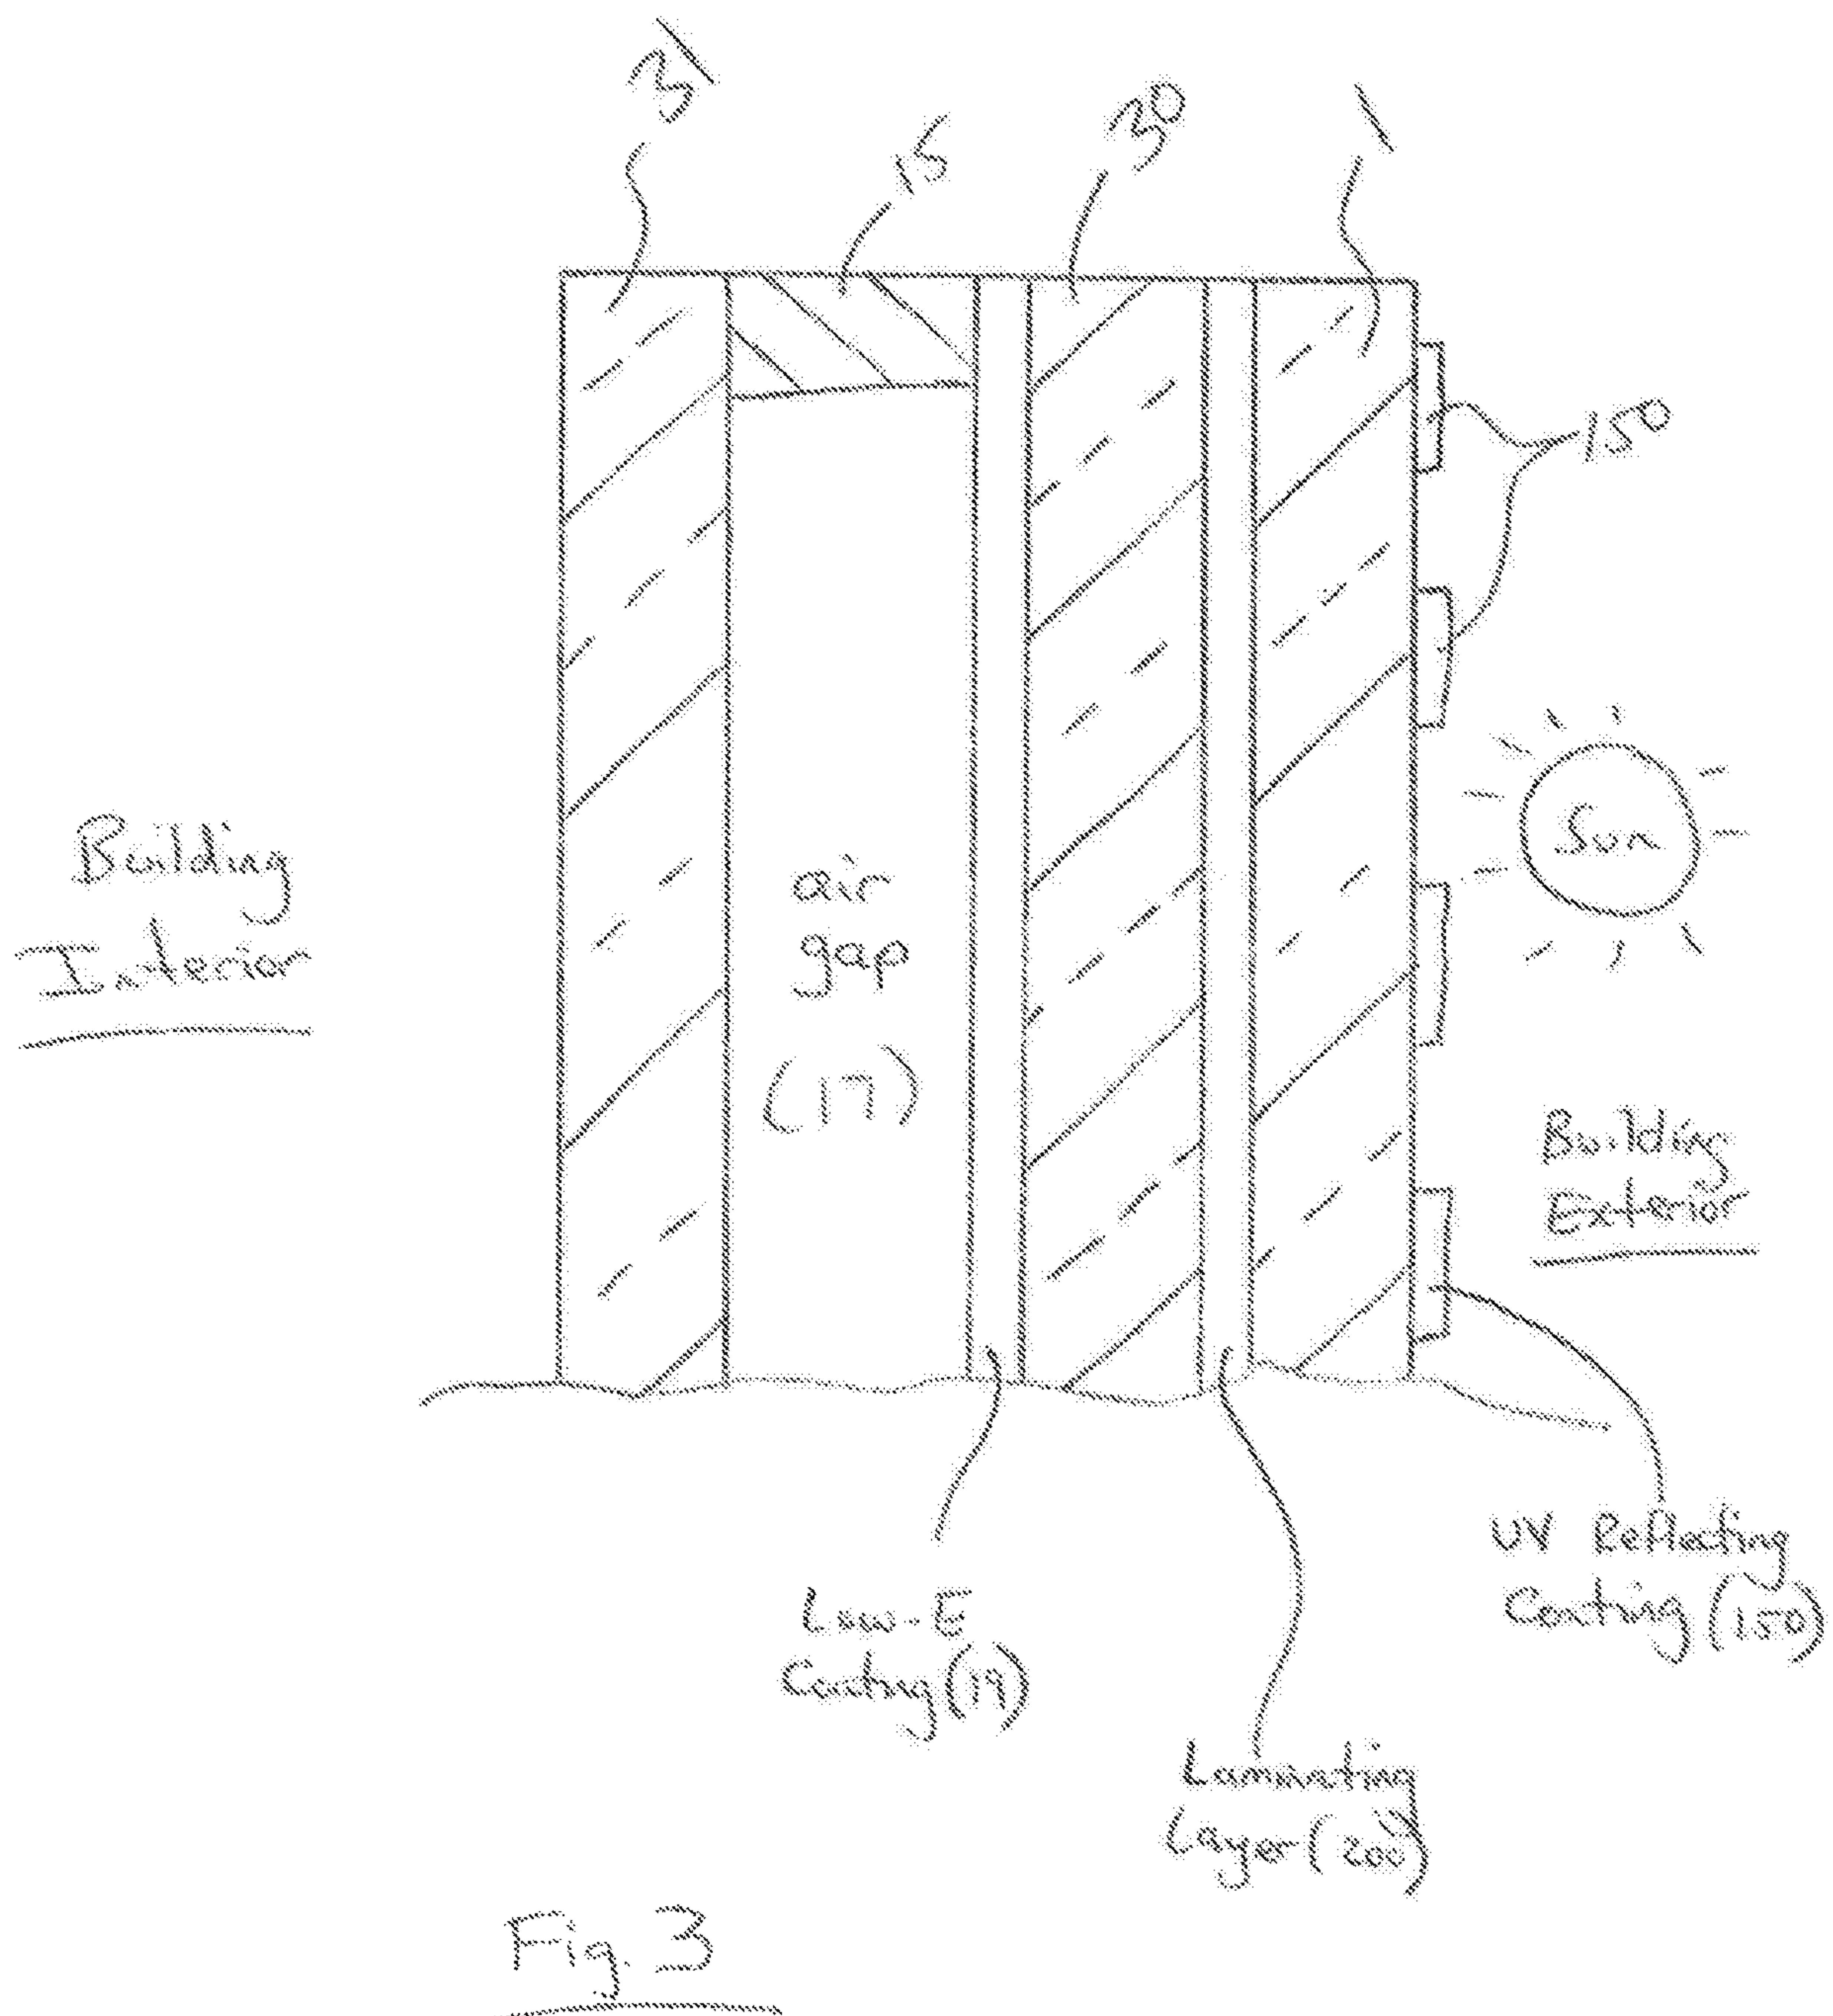 31
15
30
1
150
Sun
Building
Interior
air
gap
(17)
Building
Exterior
UV Reflecting
Coating (150)
Low-E
Coating (19)
Laminating
Layer (200)
Fig. 3